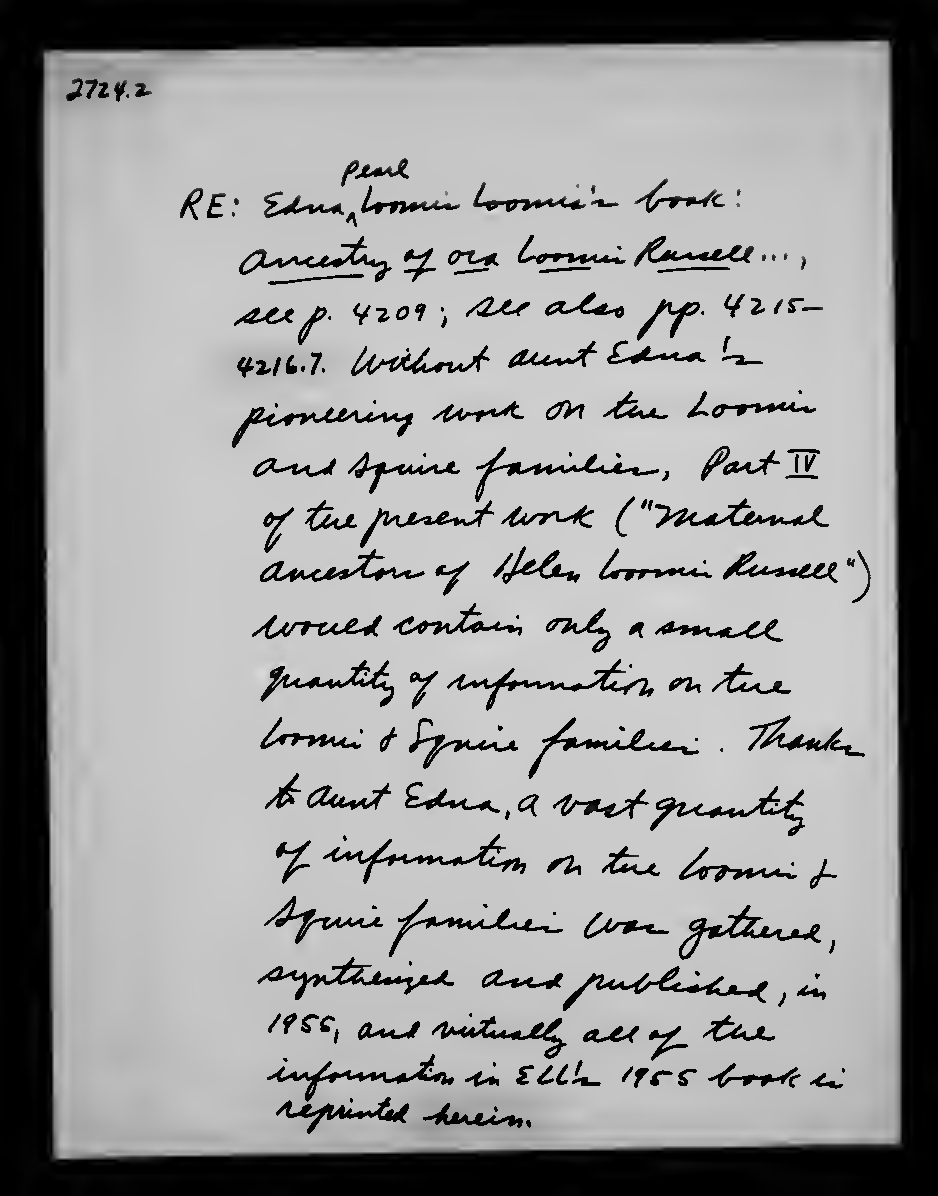 2724.2
Pearl
RE: Edna ^ Loomis Loomis's book:
Ancestry of Ora Loomis Russell...,
see p. 4209; see also pp. 4215-
4216.7. Without Aunt Edna's
pioneering work on the Loomis
and Squire families, Part IV
of the present work ("Maternal
Ancestors of Helen Loomis Russell")
would contain only a small
quantity of information on the
Loomis & Squire families. Thanks
to Aunt Edna, a vast quantity
of information on the Loomis &
Squire families was gathered,
synthesized and published, in
1955, and virtually all of the
information in ELL's 1955 book is
reprinted herein.